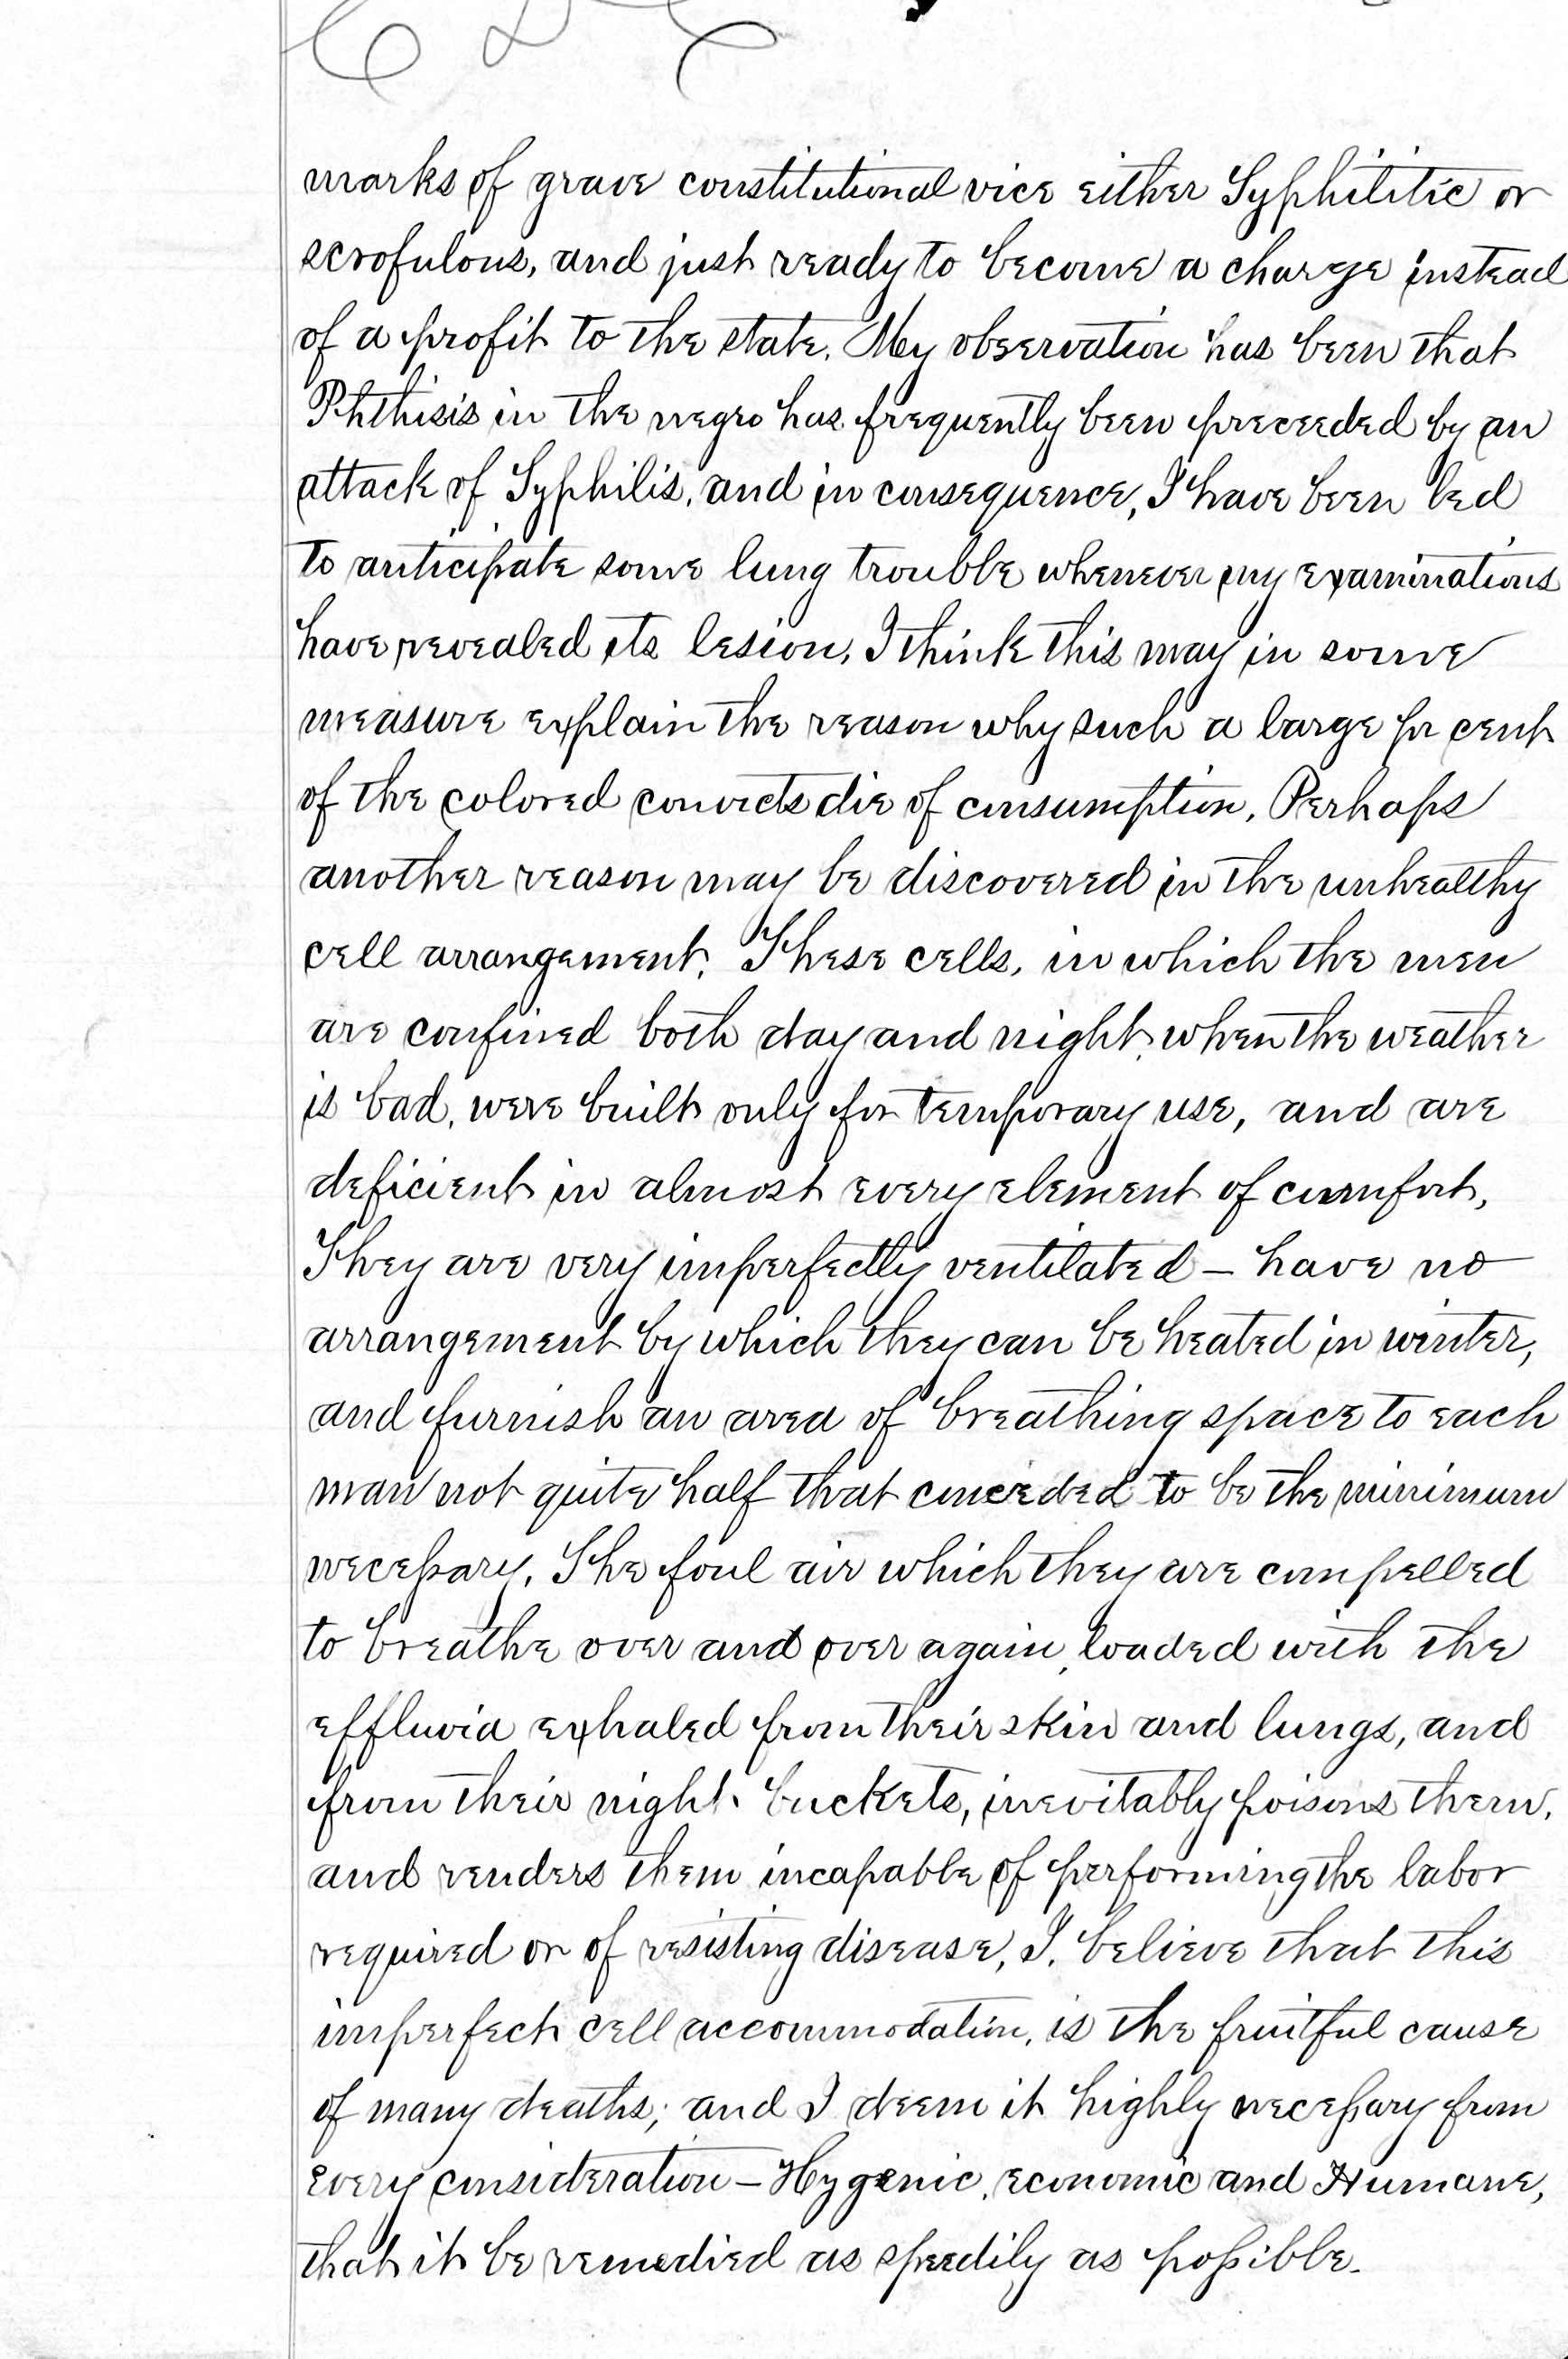 marks of grave constitutional vice either Syphilitic or
scrofulous, and just ready to become a charge instead
of a profit to the state. My observation has been that
Phthisis in the negro has frequently been preceeded by an
attack of Syphilis, and in consequence, I have been led
to anticipate some lung trouble whenever my examinations
have revealed its lesion. I think this may in some
measure explain the reason why such a large pr cent
of the colored convicts die of consumption. Perhaps
another reason may be discovered in the unhealthy
cell arrangement. These cells, in which the men
are confined both day and night, when the weather
is bad, were built only for temporary use, and are
deficient in almost every element of comfort.
They are very imperfectly ventilated – have no
arrangement by which they can be heated in winter,
and furnish an area of breathing space to each
man not quite half that conceded to be the minimum
necessary. The foul air which they are compelled
to breathe over and over again, loaded with the
effluvia exhaled from their skin and lungs, and
from their night buckets, inevitably poisons them,
and renders them incapable of performing the labor
required or of resisting disease, I. believe that this
imperfect cell accommodation, is the fruitful cause
of many deaths; and I deem it highly necessary from
every consideration – Hygenic, economic and Humane,
that it be remedied as speedily as possible.